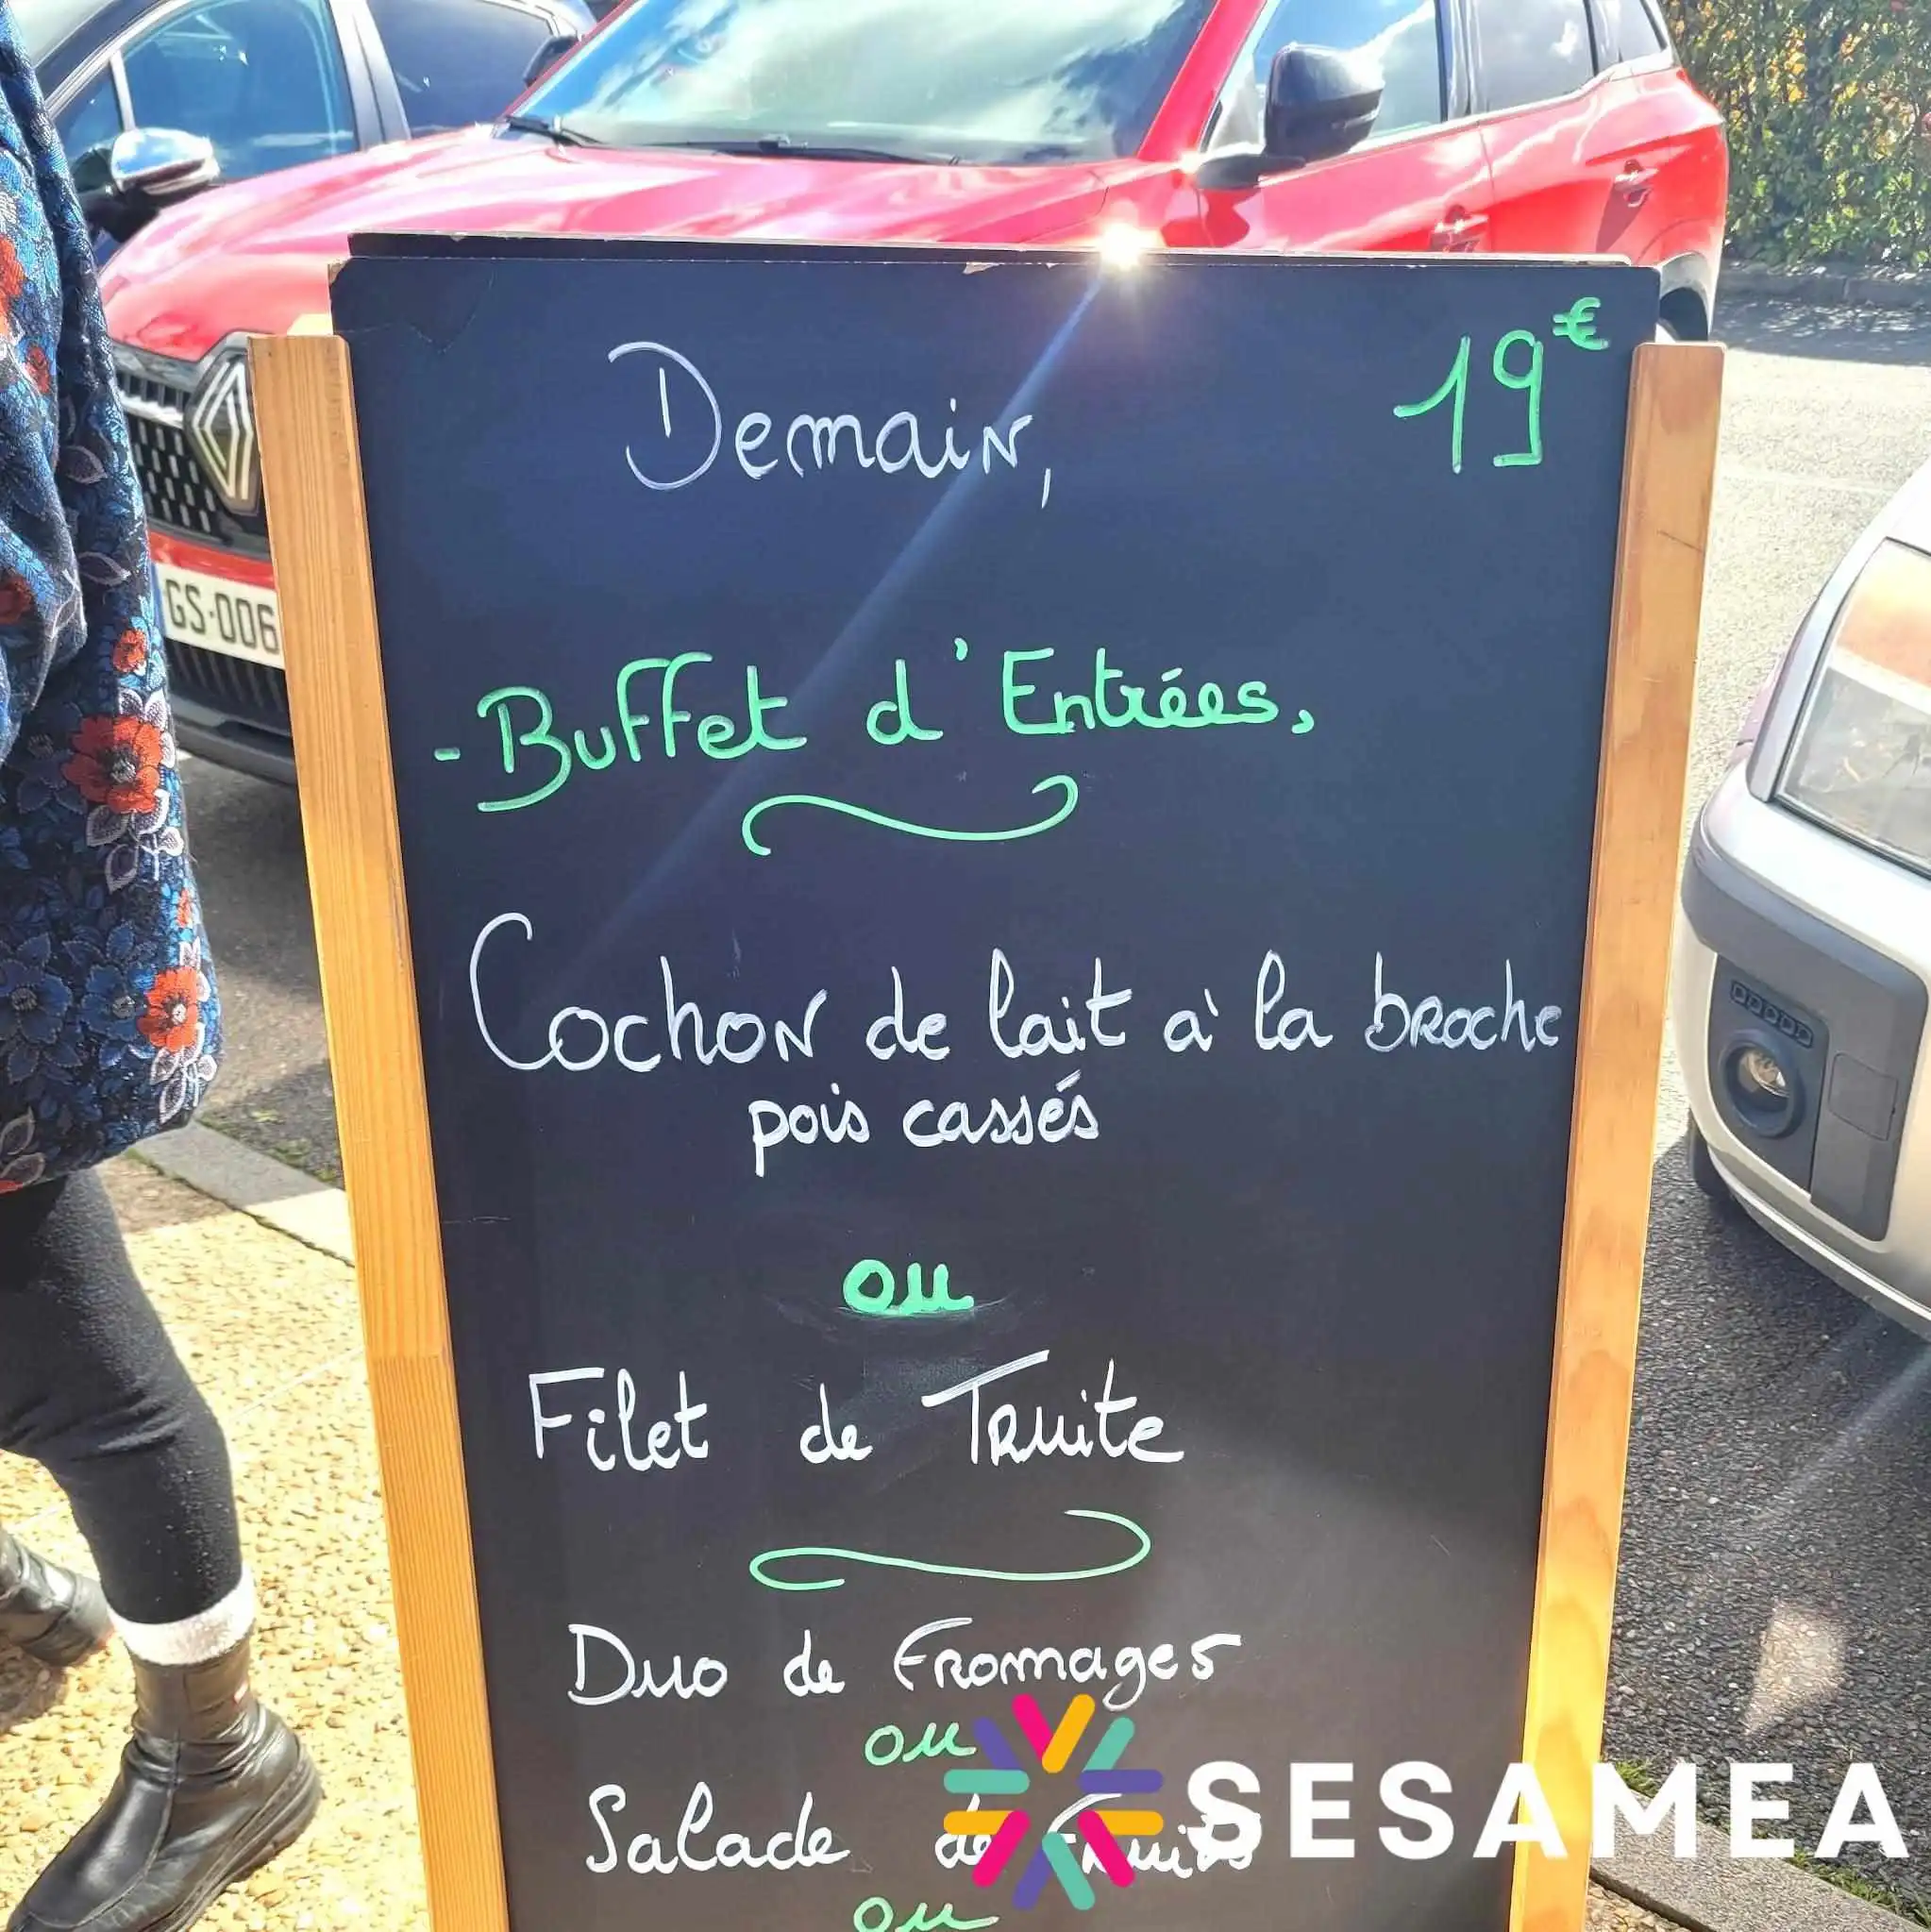 Demain,
19€
- Buffet d'Entrées,
Cochon de lait à la broche
pois cassés
ou
Filet de Truite
Duo de Fromages
ou
Salade de Fruits
ou
GS-006
SESAMEA